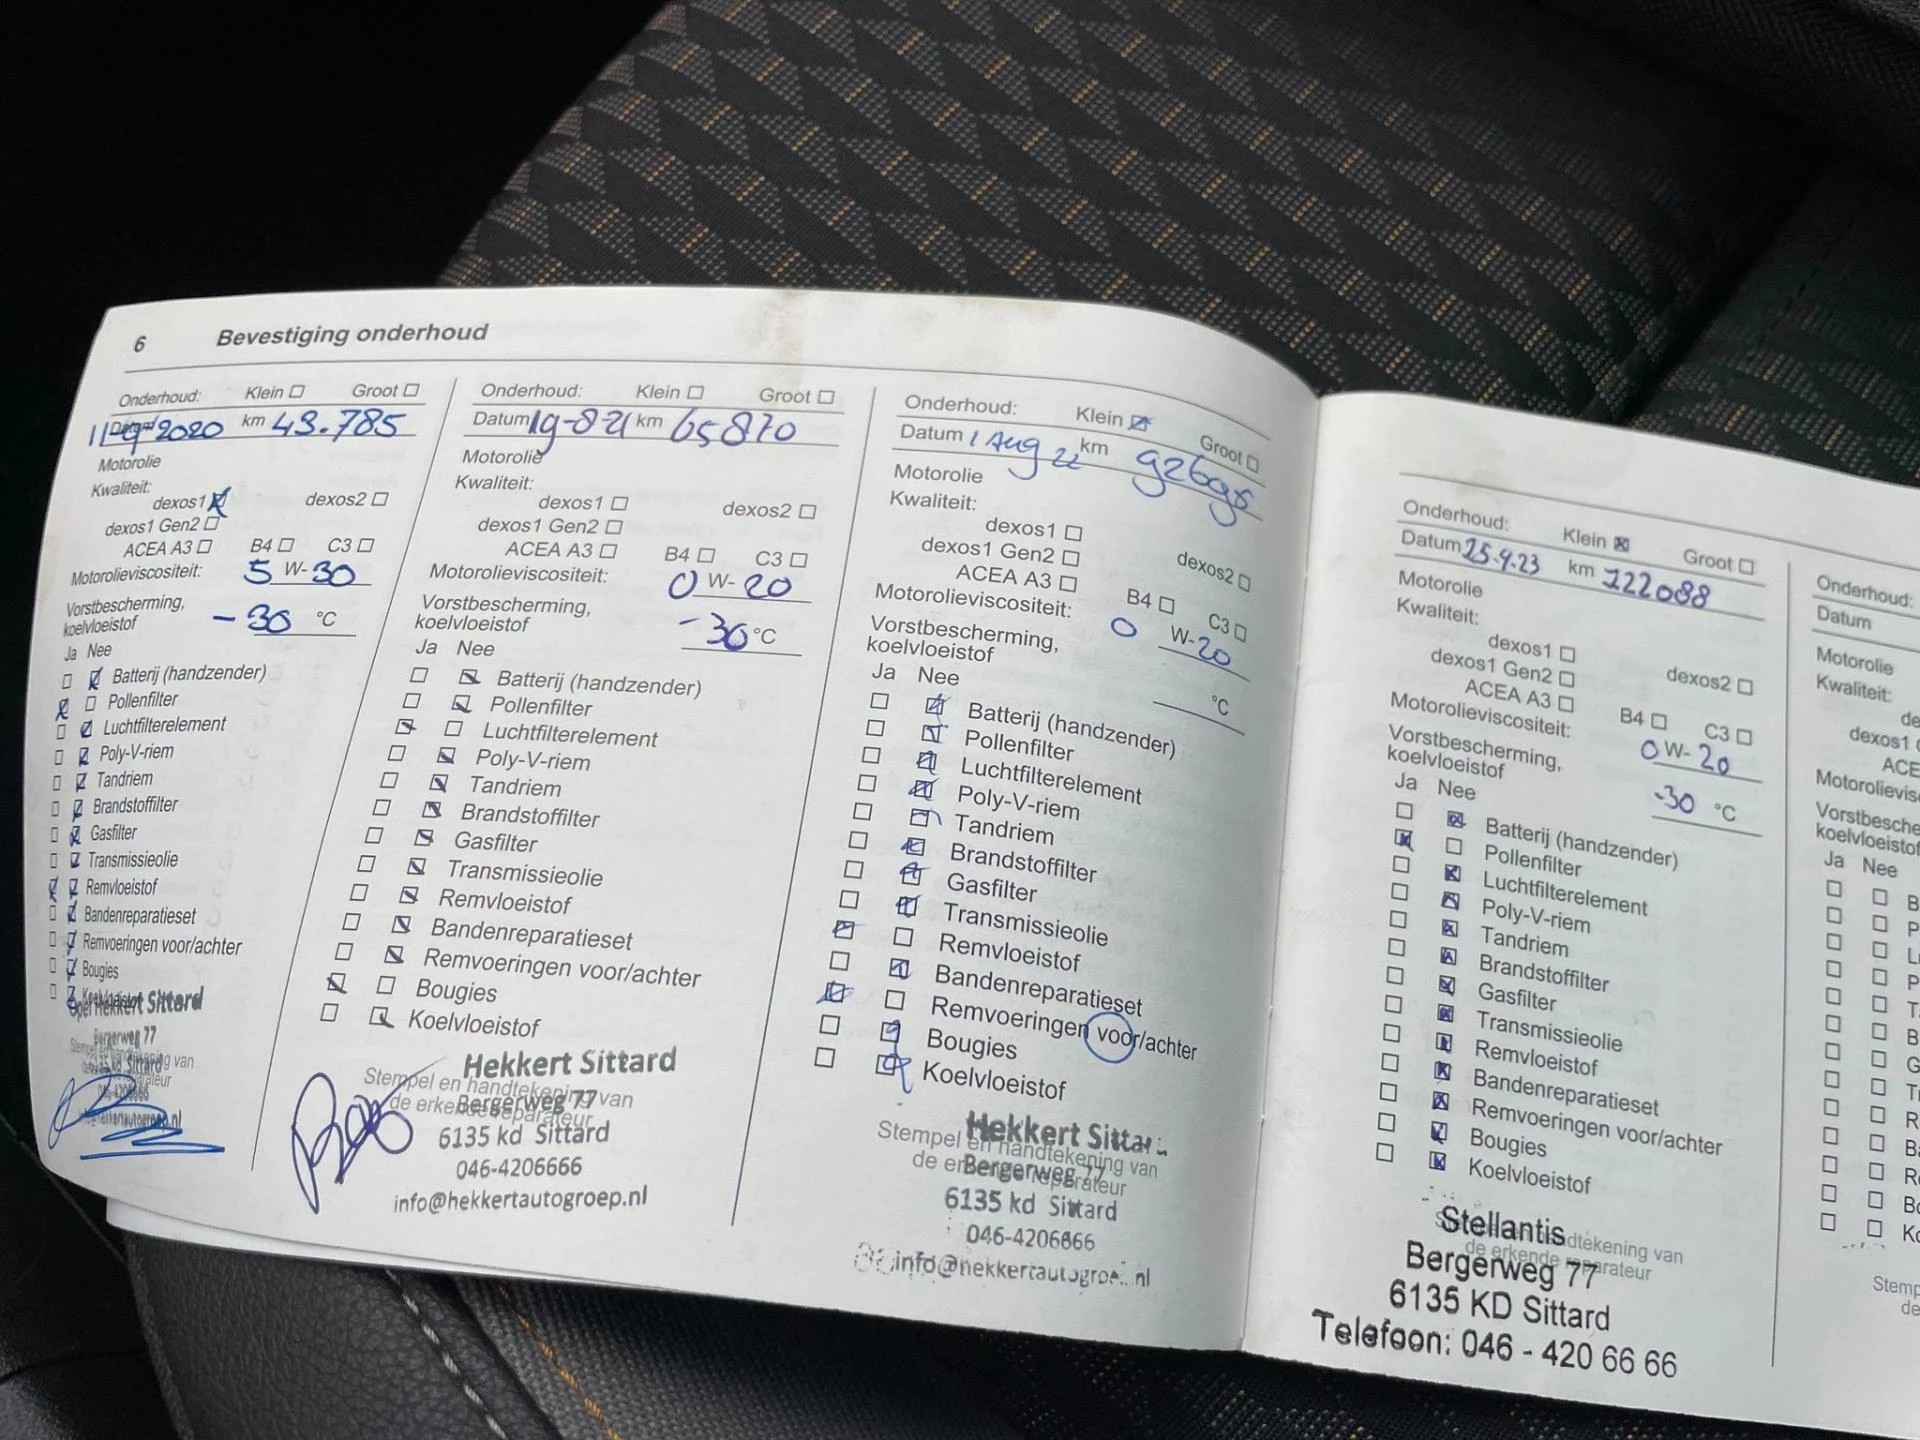 6 Bevestiging onderhoud
Onderhoud: Klein Groot
11-9-2020 km 43.785
Motorolie
Kwaliteit:
dexos1 dexos2
dexos1 Gen2
ACEA A3 B4 C3
Motorolieviscositeit: 5 W-30
Vorstbescherming,
koelvloeistof -30 °C
Ja Nee
Batterij (handzender)
Pollenfilter
Luchtfilterelement
Poly-V-riem
Tandriem
Brandstoffilter
Gasfilter
Transmissieolie
Remvloeistof
Bandenreparatieset
Remvoeringen voor/achter
Bougies
Koelvloeistof
Opel Hekkert Sittard
Bergerweg 77
Onderhoud: Klein Groot
Datum 19-8-21 km 65870
Motorolie
Kwaliteit:
dexos1 dexos2
dexos1 Gen2
ACEA A3 B4 C3
Motorolieviscositeit: 0 W-20
Vorstbescherming,
koelvloeistof -30 °C
Ja Nee
Batterij (handzender)
Pollenfilter
Luchtfilterelement
Poly-V-riem
Tandriem
Brandstoffilter
Gasfilter
Transmissieolie
Remvloeistof
Bandenreparatieset
Remvoeringen voor/achter
Bougies
Koelvloeistof
Hekkert Sittard
Stempel en handtekening van
Bergerweg 77
de erkende reparateur
6135 kd Sittard
046-4206666
info@hekkertautogroep.nl
Onderhoud: Klein Groot
Datum 1 Aug 22 km
Motorolie
Kwaliteit:
dexos1 dexos2
dexos1 Gen2
ACEA A3 B4 C3
Motorolieviscositeit: 0 W-20
Vorstbescherming,
koelvloeistof °C
Ja Nee
Batterij (handzender)
Pollenfilter
Luchtfilterelement
Poly-V-riem
Tandriem
Brandstoffilter
Gasfilter
Transmissieolie
Remvloeistof
Bandenreparatieset
Remvoeringen voor/achter
Bougies
Koelvloeistof
Hekkert Sittar
Stempel en handtekening van
Bergerweg 77
de erkende reparateur
6135 kd Sittard
046-4206666
info@hekkertautogroep.nl
Onderhoud: Klein Groot
Datum 25.4.23 km 122088
Motorolie
Kwaliteit:
dexos1 dexos2
dexos1 Gen2
ACEA A3 B4 C3
Motorolieviscositeit: 0 W-20
Vorstbescherming,
koelvloeistof -30 °C
Ja Nee
Batterij (handzender)
Pollenfilter
Luchtfilterelement
Poly-V-riem
Tandriem
Brandstoffilter
Gasfilter
Transmissieolie
Remvloeistof
Bandenreparatieset
Remvoeringen voor/achter
Bougies
Koelvloeistof
Stellantis
de erkende reparateur
Bergerweg 77
6135 KD Sittard
Telefoon: 046 - 420 66 66
Onderhoud:
Datum
Motorolie
Kwaliteit:
de
dexos1
ACE
Motorolievis
Vorstbesche
koelvloeistof
Ja Nee
B
P
L
P
T
B
G
T
R
B
R
Bo
Ko
Stemp
de